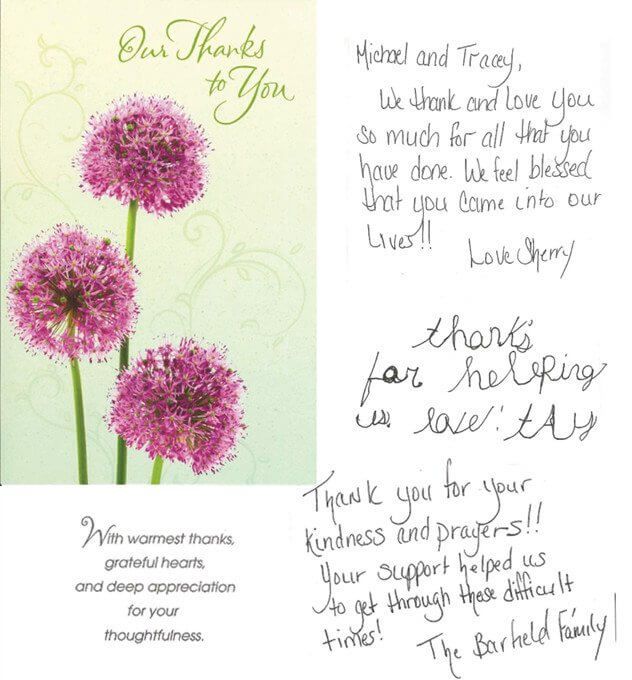 Our Thanks
to You
Michael and Tracey,
We thank and love you
so much for all that you
have done. We feel blessed
that you came into our
Lives!!
Love Sherry
thanks
for helping
us. love! tay
Thank you for your
kindness and prayers!!
Your support helped us
to get through these difficult
times!
The Barheld Family!
With warmest thanks,
grateful hearts,
and deep appreciation
for your
thoughtfulness.